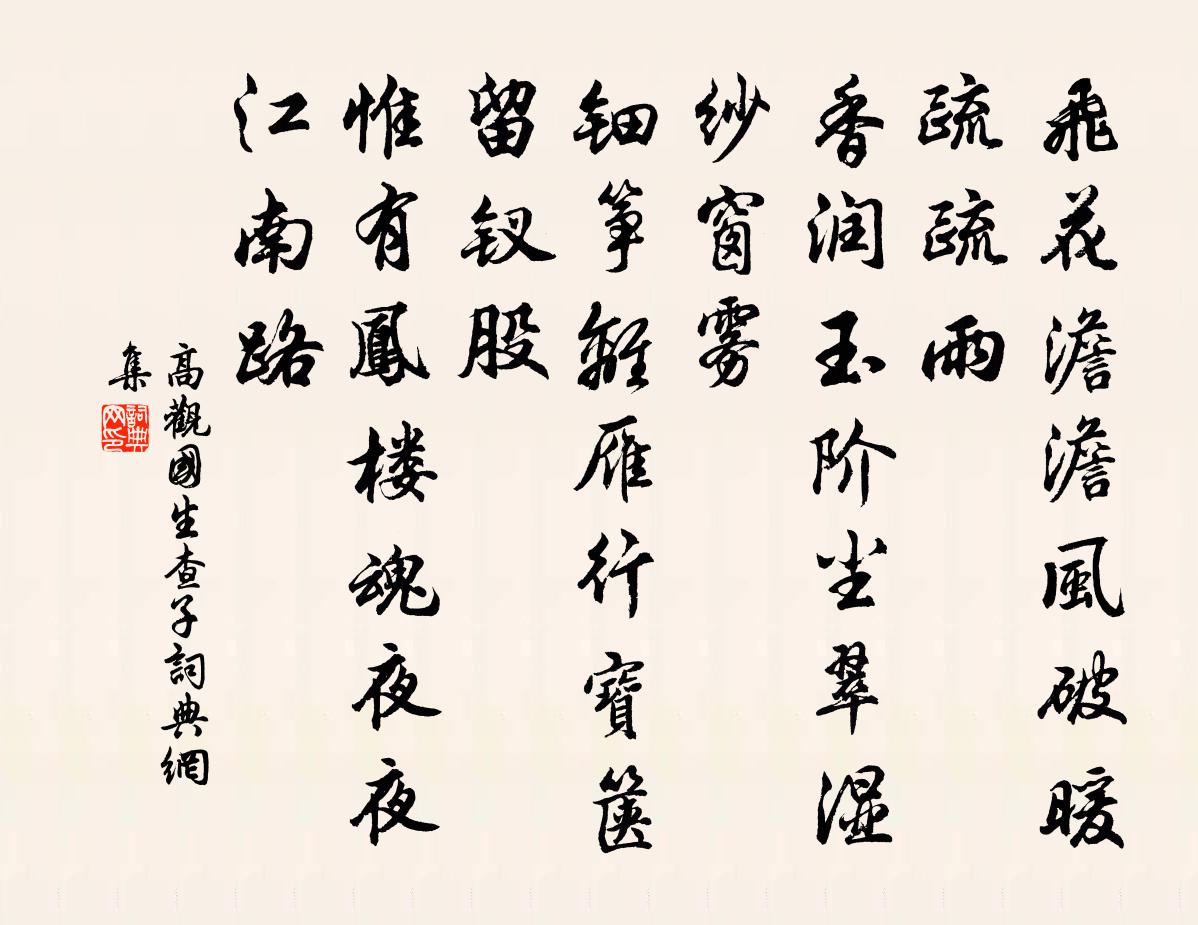 飛花澹澹風破暖
疏疏雨
香润玉阶尘翠湿
纱窗雾
钿筝離雁行寶箧
留钗股
惟有鳳楼魂夜夜
江南路
高觀國生查子詞典網
集
詞典网印